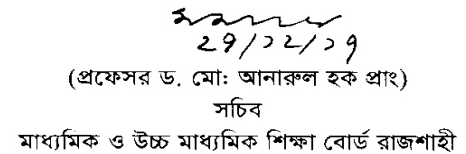 ২১/১২/১৭
(প্রফেসর ড. মো: আনারুল হক প্রাং)
সচিব
মাধ্যমিক ও উচ্চ মাধ্যমিক শিক্ষা বোর্ড রাজশাহী